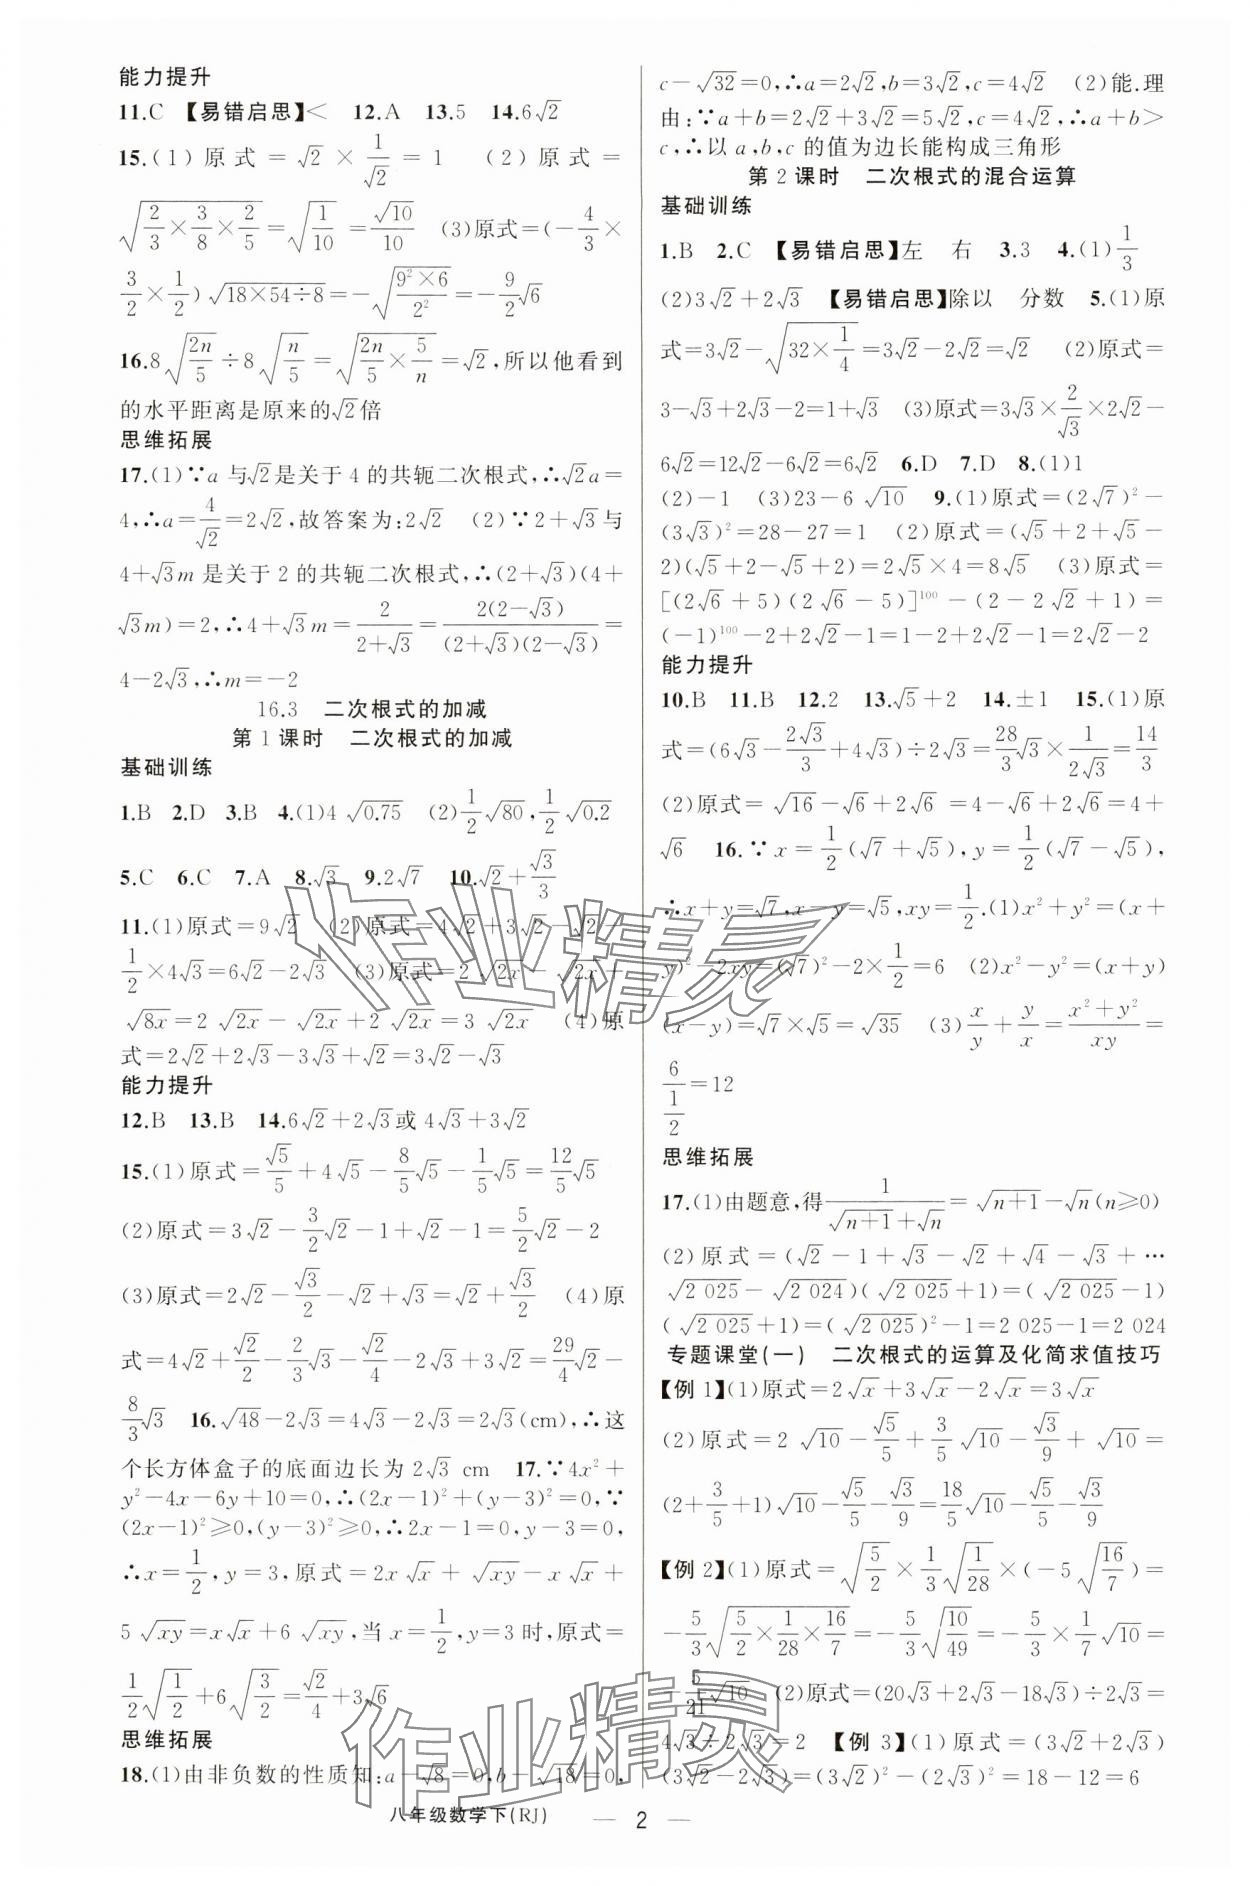 能力提升
11.C 【易错启思】< 12.A 13.5 14.6√2
15.(1)原式=√2×1/√2=1 (2)原式=
√(2/3×3/8×2/5)=√(1/10)=√10/10 (3)原式=(-4/3×
3/2×1/2)√(18×54÷8)=-√(9²×6/2²)=-9/2√6
16.8√(2n/5)÷8√(n/5)=√(2n/5×5/n)=√2,所以他看到
的水平距离是原来的√2倍
思维拓展
17.(1)∵a与√2是关于4的共轭二次根式,∴√2a=
4,∴a=4/√2=2√2,故答案为:2√2 (2)∵2+√3与
4+√3m是关于2的共轭二次根式,∴(2+√3)(4+
√3m)=2,∴4+√3m=2/(2+√3)=2(2-√3)/((2+√3)(2-√3))=
4-2√3,∴m=-2
16.3 二次根式的加减
第1课时 二次根式的加减
基础训练
1.B 2.D 3.B 4.(1)4√0.75 (2)1/2√80,1/2√0.2
5.C 6.C 7.A 8.√3 9.2√7 10.√2+√3/3
11.(1)原式=9√2 (2)原式=4√2+3√2-√2-
1/2×4√3=6√2-2√3 (3)原式=2√2x-√2x+
√8x=2√2x-√2x+2√2x=3√2x (4)原
式=2√2+2√3-3√3+√2=3√2-√3
能力提升
12.B 13.B 14.6√2+2√3或4√3+3√2
15.(1)原式=√5/5+4√5-8/5√5-1/5√5=12/5√5
(2)原式=3√2-3/2√2-1+√2-1=5/2√2-2
(3)原式=2√2-√3/2-√2+√3=√2+√3/2 (4)原
式=4√2+√2/2-2/3√3-√2/4-2√3+3√2=29/4√2-
8/3√3 16.√48-2√3=4√3-2√3=2√3(cm),∴这
个长方体盒子的底面边长为2√3 cm 17.∵4x²+
y²-4x-6y+10=0,∴(2x-1)²+(y-3)²=0,∵
(2x-1)²≥0,(y-3)²≥0,∴2x-1=0,y-3=0,
∴x=1/2,y=3,原式=2x√x+√xy-x√x+
5√xy=x√x+6√xy,当x=1/2,y=3时,原式=
1/2√(1/2)+6√(3/2)=√2/4+3√6
思维拓展
18.(1)由非负数的性质知:a-√8=0,b-√18=0,
c-√32=0,∴a=2√2,b=3√2,c=4√2 (2)能.理
由:∵a+b=2√2+3√2=5√2,c=4√2,∴a+b>
c,∴以a,b,c的值为边长能构成三角形
第2课时 二次根式的混合运算
基础训练
1.B 2.C 【易错启思】左 右 3.3 4.(1)1/3
(2)3√2+2√3 【易错启思】除以 分数 5.(1)原
式=3√2-√(32×1/4)=3√2-2√2=√2 (2)原式=
3-√3+2√3-2=1+√3 (3)原式=3√3×2/√3×2√2-
6√2=12√2-6√2=6√2 6.D 7.D 8.(1)1
(2)-1 (3)23-6√10 9.(1)原式=(2√7)²-
(3√3)²=28-27=1 (2)原式=(√5+2+√5-
2)(√5+2-√5+2)=2√5×4=8√5 (3)原式=
[(2√6+5)(2√6-5)]¹⁰⁰-(2-2√2+1)=
(-1)¹⁰⁰-2+2√2-1=1-2+2√2-1=2√2-2
能力提升
10.B 11.B 12.2 13.√5+2 14.±1 15.(1)原
式=(6√3-2√3/3+4√3)÷2√3=28/3√3×1/(2√3)=14/3
(2)原式=√16-√6+2√6=4-√6+2√6=4+
√6 16.∵x=1/2(√7+√5),y=1/2(√7-√5),
∴x+y=√7,x-y=√5,xy=1/2.(1)x²+y²=(x+
y)²-2xy=(√7)²-2×1/2=6 (2)x²-y²=(x+y)
(x-y)=√7×√5=√35 (3)x/y+y/x=(x²+y²)/xy=
6/(1/2)=12
思维拓展
17.(1)由题意,得1/(√(n+1)+√n)=√(n+1)-√n(n≥0)
(2)原式=(√2-1+√3-√2+√4-√3+…
√2 025-√2 024)(√2 025+1)=(√2 025-1)
(√2 025+1)=(√2 025)²-1=2 025-1=2 024
专题课堂(一) 二次根式的运算及化简求值技巧
【例1】(1)原式=2√x+3√x-2√x=3√x
(2)原式=2√10-√5/5+3/5√10-√3/9+√10=
(2+3/5+1)√10-√5/5-√3/9=18/5√10-√5/5-√3/9
【例2】(1)原式=√(5/2)×1/3√(1/28)×(-5√(16/7))=
-5/3√(5/2×1/28×16/7)=-5/3√(10/49)=-5/3×1/7√10=
-5/21√10 (2)原式=(20√3+2√3-18√3)÷2√3=
4√3÷2√3=2 【例3】(1)原式=(3√2+2√3)
(3√2-2√3)=(3√2)²-(2√3)²=18-12=6
八年级数学下(RJ) — 2 —
作业精灵
作业精灵